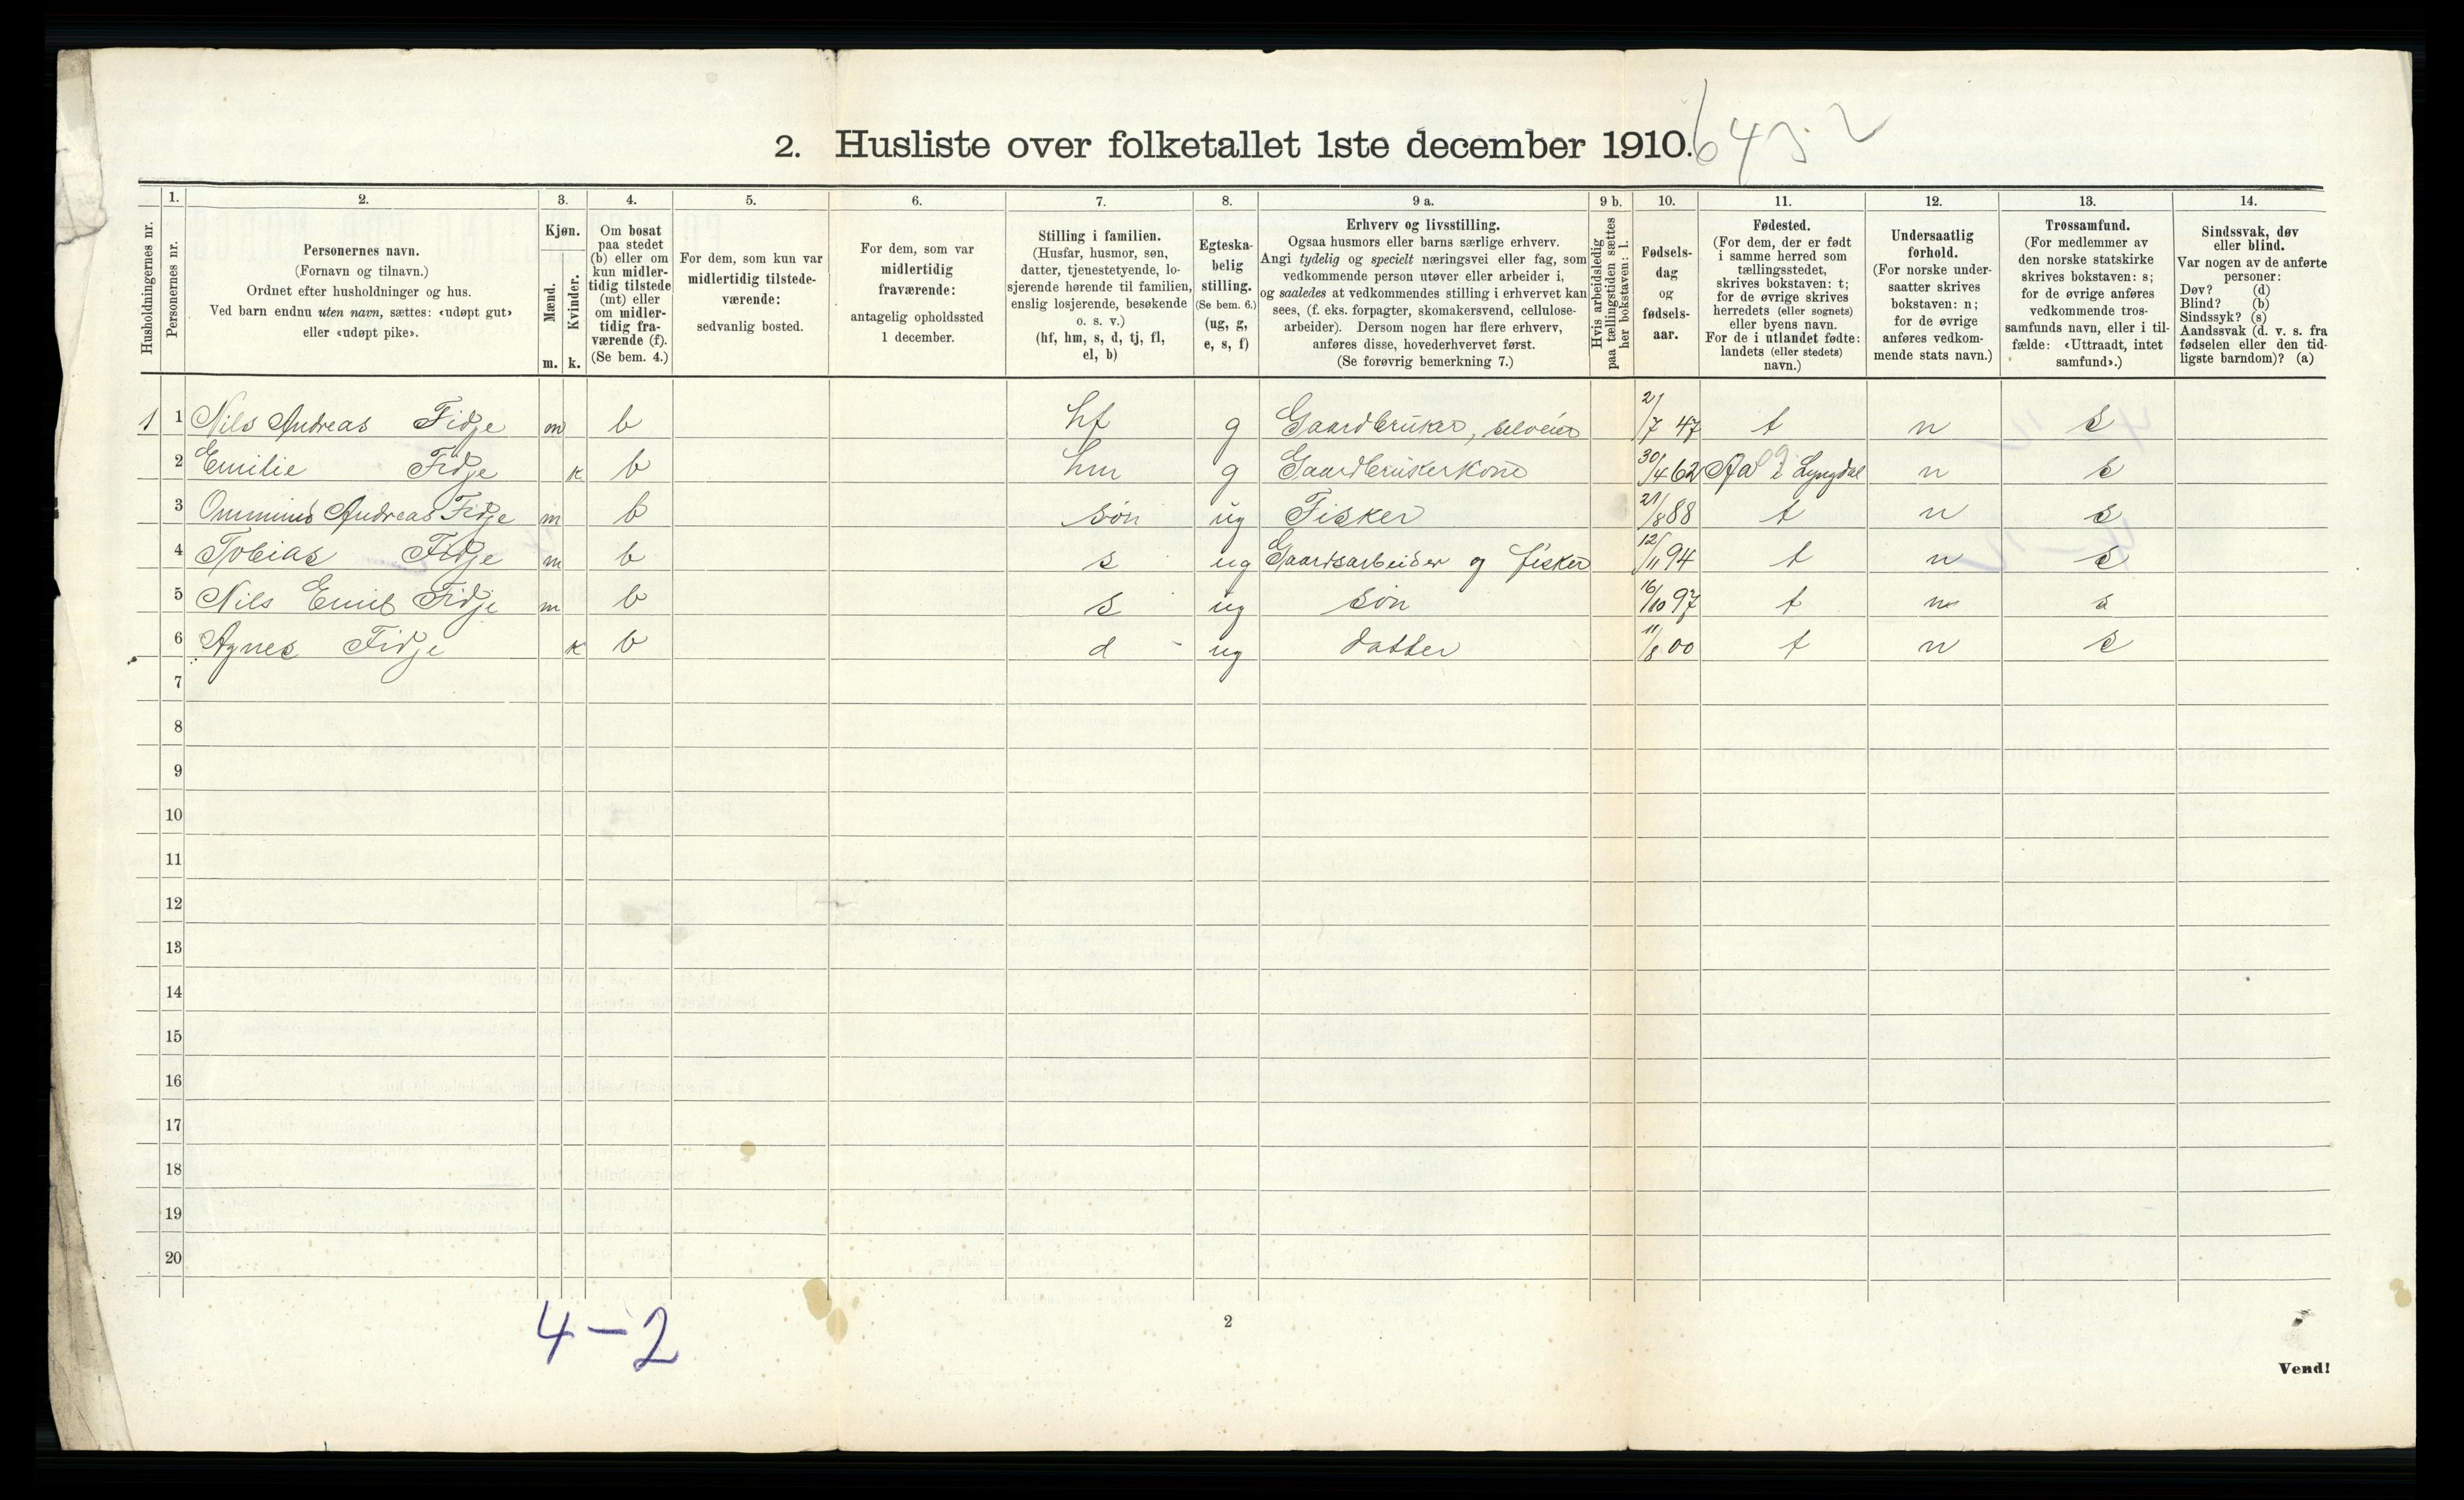 2. Husliste over folketallet 1ste december 1910.
Husholdningernes nr.
1.
Personernes nr.
2.
Personernes navn.
(Fornavn og tilnavn.)
Ordnet efter husholdninger og hus.
Ved barn endnu uten navn, sættes: «udøpt gut»
eller «udøpt pike».
3.
Kjøn.
Mænd.
Kvinder.
m. k.
4.
Om bosat
paa stedet
(b) eller om
kun midler-
tidig tilstede
(mt) eller
om midler-
tidig fra-
værende (f).
(Se bem. 4.)
5.
For dem, som kun var
midlertidig tilstede-
værende:
sedvanlig bosted.
6.
For dem, som var
midlertidig
fraværende:
antagelig opholdssted
1 december.
7.
Stilling i familien.
(Husfar, husmor, søn,
datter, tjenestetyende, lo-
sjerende hørende til familien,
enslig losjerende, besøkende
o. s. v.)
(hf, hm, s, d, tj, fl,
el, b)
8.
Egteska-
belig
stilling.
(Se bem. 6.)
(ug, g,
e, s, f)
9 a.
Erhverv og livsstilling.
Ogsaa husmors eller barns særlige erhverv.
Angi tydelig og specielt næringsvei eller fag, som
vedkommende person utøver eller arbeider i,
og saaledes at vedkommendes stilling i erhvervet kan
sees, (f. eks. forpagter, skomakersvend, cellulose-
arbeider). Dersom nogen har flere erhverv,
anføres disse, hovederhvervet først.
(Se forøvrig bemerkning 7.)
9 b.
Hvis arbeidsledig
paa tællingstiden sættes
her bokstaven: l.
10.
Fødsels-
dag
og
fødsels-
aar.
11.
Fødested.
(For dem, der er født
i samme herred som
tællingsstedet,
skrives bokstaven: t;
for de øvrige skrives
herredets (eller sognets)
eller byens navn.
For de i utlandet fødte:
landets (eller stedets)
navn.)
12.
Undersaatlig
forhold.
(For norske under-
saatter skrives
bokstaven: n;
for de øvrige
anføres vedkom-
mende stats navn.)
13.
Trossamfund.
(For medlemmer av
den norske statskirke
skrives bokstaven: s;
for de øvrige anføres
vedkommende tros-
samfunds navn, eller i til-
fælde: «Uttraadt, intet
samfund».)
14.
Sindssvak, døv
eller blind.
Var nogen av de anførte
personer:
Døv? (d)
Blind? (b)
Sindssyk? (s)
Aandssvak (d. v. s. fra
fødselen eller den tid-
ligste barndom)? (a)
1 1 Nils Andreas Fidje m b hf g Gaardbruker, selveier 21/7 47 t n s
2 Emilie Fidje k b hm g Gaardbrukerkone 30/4 62 Aa i Lyngdal n s
3 Ommund Andreas Fidje m b søn ug Fisker 21/8 88 t n s
4 Tobias Fidje m b s ug Gaardsarbeider og fisker 12/11 94 t n s
5 Nils Emil Fidje m b s ug søn 16/10 97 t n s
6 Agnes Fidje k b d - ug datter 11/8 00 t n s
7
8
9
10
11
12
13
14
15
16
17
18
19
20
4-2
2
Vend!